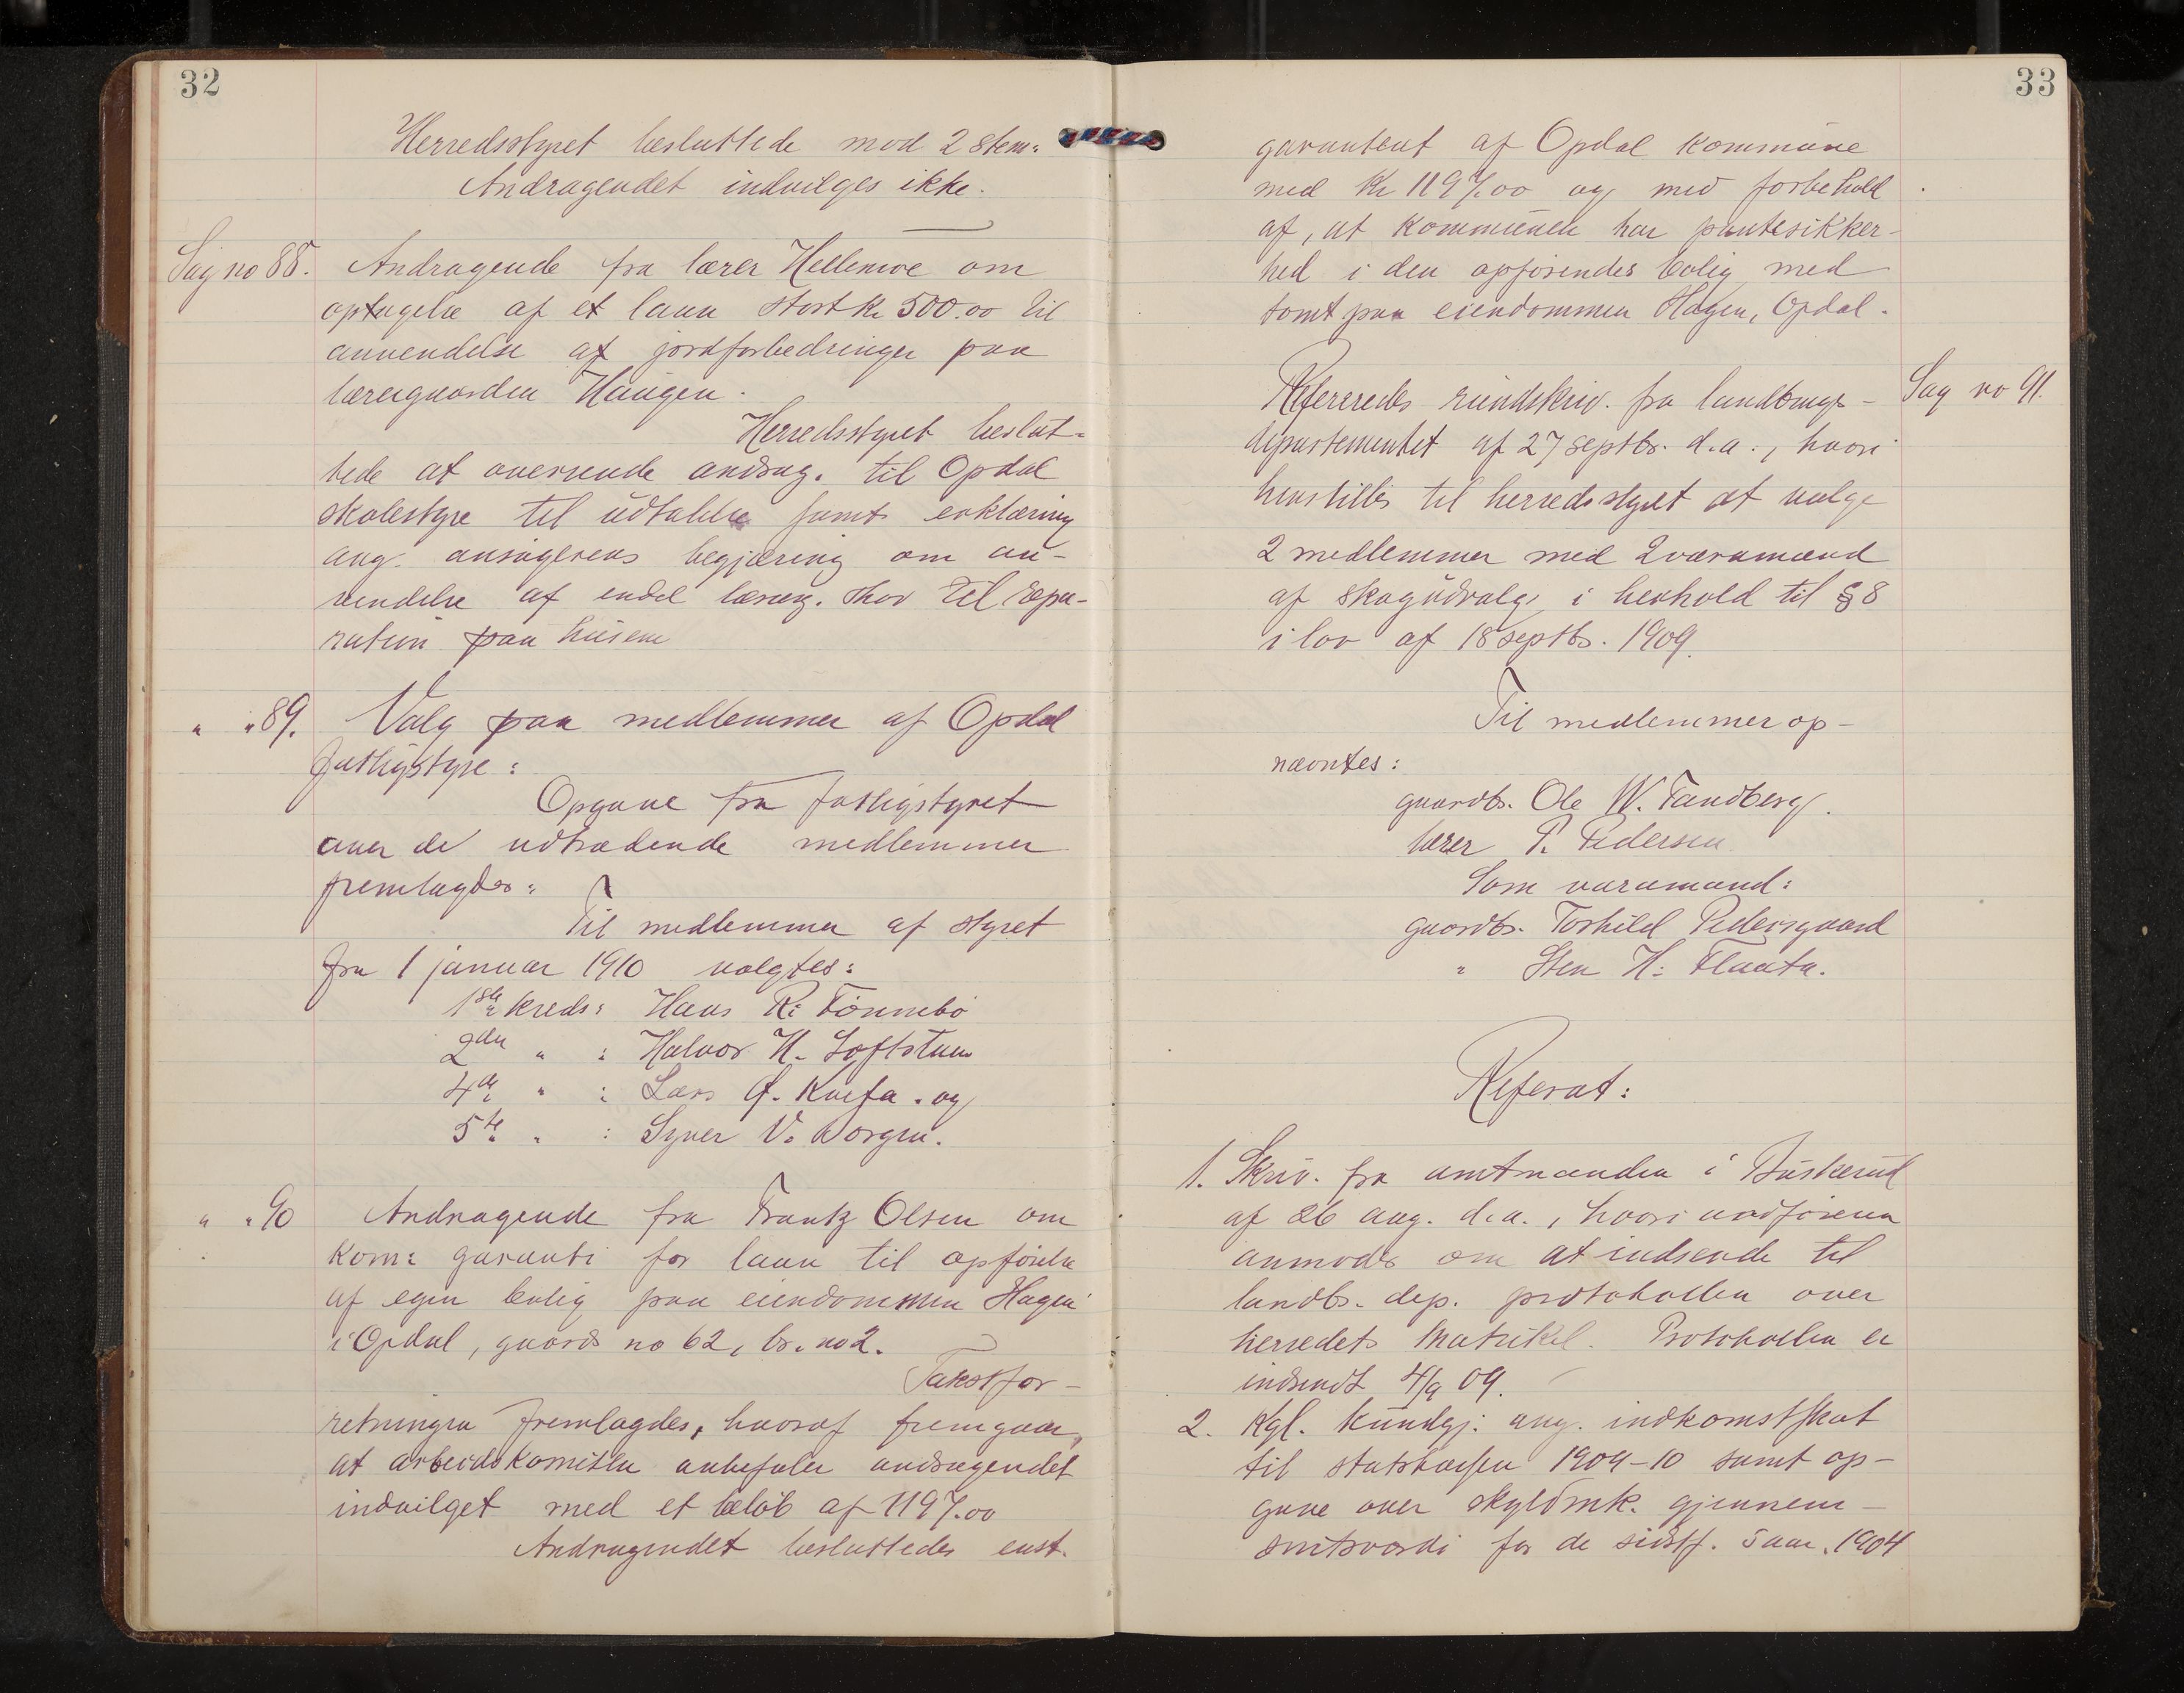 32
Herredsstyret besluttede mod 2 stem:
Andragendet indvilges ikke.
Sag no 88. Andragende fra lærer Hellemoe om
optagelse af et laan stort kr 500.00 til
anvendelse af jordforbedringer paa
lærergaarden Haugen.
Herredsstyret beslut-
tede at oversende andrag. til Opdal
skolestyre til udtalelse samt erklæring
ang. ansøgerens begjæring om an-
vendelse af endel lærerg. skov til repa-
ration paa husene
" " 89. Valg paa medlemmer af Opdal
fattigstyre:
Opgave fra fattigstyret
over de udtrædende medlemmer
fremlagdes:
Til medlemmer af styret
fra 1 januar 1910 valgtes:
1ste kreds: Hans R: Tønnebø
2den " : Halvor H. Loftstuen
4de " : Lars Kneja. og
5te " : Syver V. Borgen.
" " 90 Andragende fra Frantz Olsen om
kom: garanti for laan til opførelse
af egen bolig paa eiendommen Hagen
i Opdal, gaards no 62, br. no 2.
Takstfor-
retningen fremlagdes, hvoraf fremgaar,
at arbeidskomitéen anbefaler andragendet
indvilget med et beløb af 1197.00
Andragendet besluttedes enst.
33
garanteret af Opdal kommune
med Kr 1197.00 og med forbehold
af, at kommunen har pantesikker-
hed i den opførendes bolig med
tomt paa eiendommen Hagen, Opdal.
Refereredes rundskriv. fra landbrugs- Sag no 91.
departementet af 27 septbr. d.a., hvori
henstilles til herredsstyret at vælge
2 medlemmer med 2 varamænd
af skogudvalg i henhold til § 8
i lov af 18 septbr. 1909.
Til medlemmer op-
nævntes:
gaardbr. Ole W. Tandberg.
lærer P. Pedersen
Som varamænd:
gaardbr. Torkild Pedersgaard
" Sten H: Flaata.
Referat:
1. Skriv. fra amtmanden i Buskerud
af 26 aug. d.a., hvori ordføreren
anmodes om at indsende til
landbr. dep. protokollen over
herredets Matrikel. Protokollen er
indsendt 4/9 09.
2. Kgl. kundgj: ang. indkomstskat
til statskassen 1909-10 samt op-
gave over skyldmk. gjennem-
snitsværdi for de sidstf. 5 aar. 1904